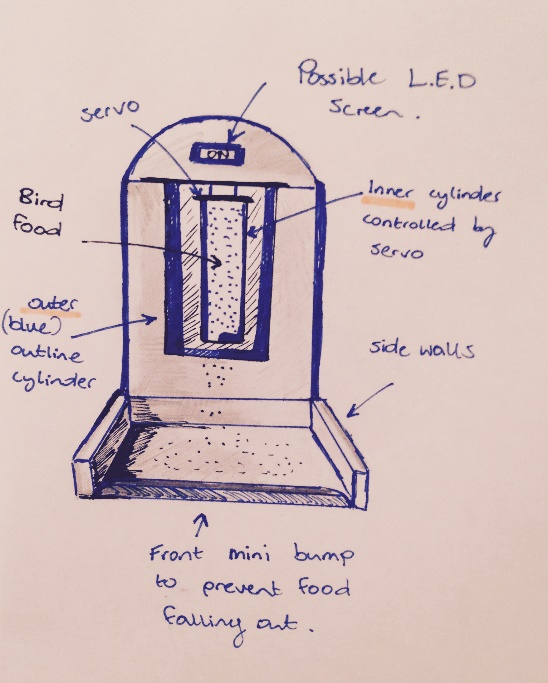 Possible L.E.D
Screen.
servo
ON
Bird
food
Inner cylinder
controlled by
servo
outer
(blue)
outline
cylinder
side walls
Front mini bump
to prevent food
falling out.